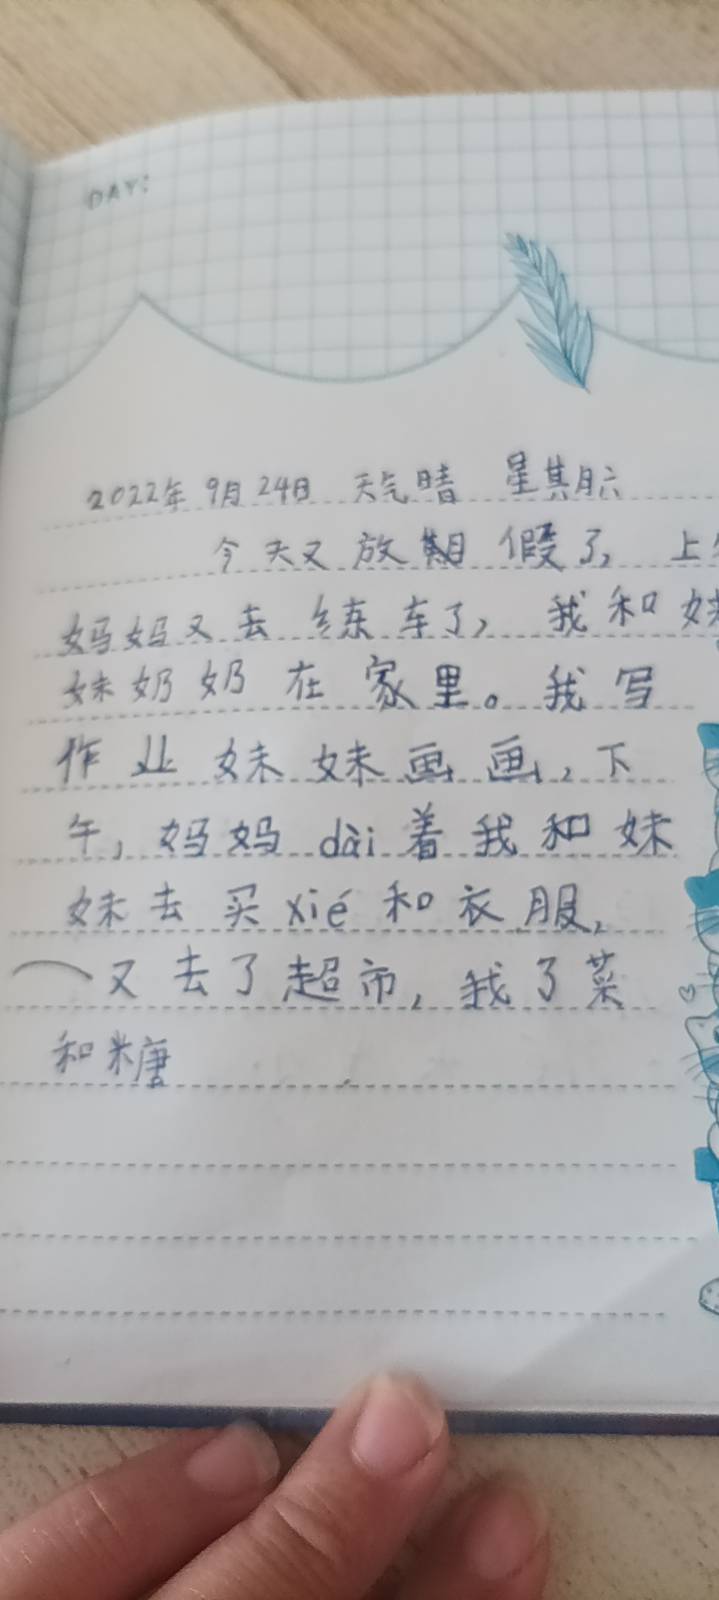 DAY:
2022年 9月24日 天气晴 星期六
今天又放期假了, 上
妈妈又去练车了, 我和妹
妹奶奶在家里。我写
作业妹妹画画, 下
午, 妈妈dài着我和妹
妹去买xié和衣服,
又去了超市, 我了菜
和糖